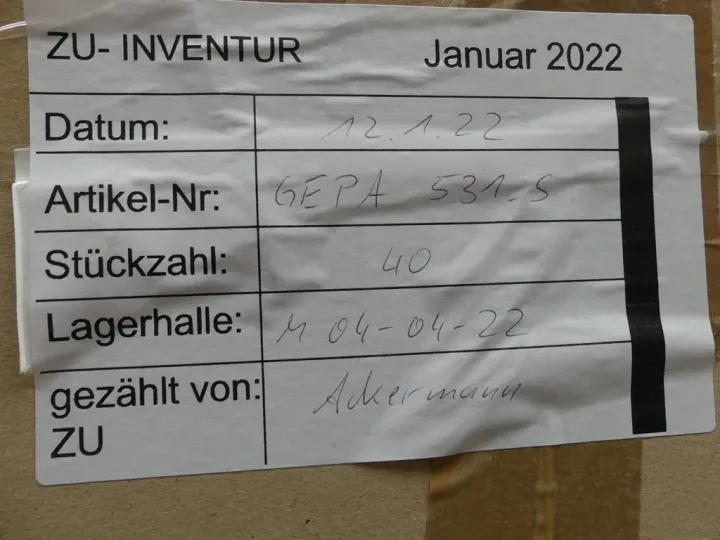 ZU- INVENTUR Januar 2022
Datum: 12.1.22
Artikel-Nr: GEPA 531-S
Stückzahl: 40
Lagerhalle: M 04-04-22
gezählt von: Ackermann
ZU